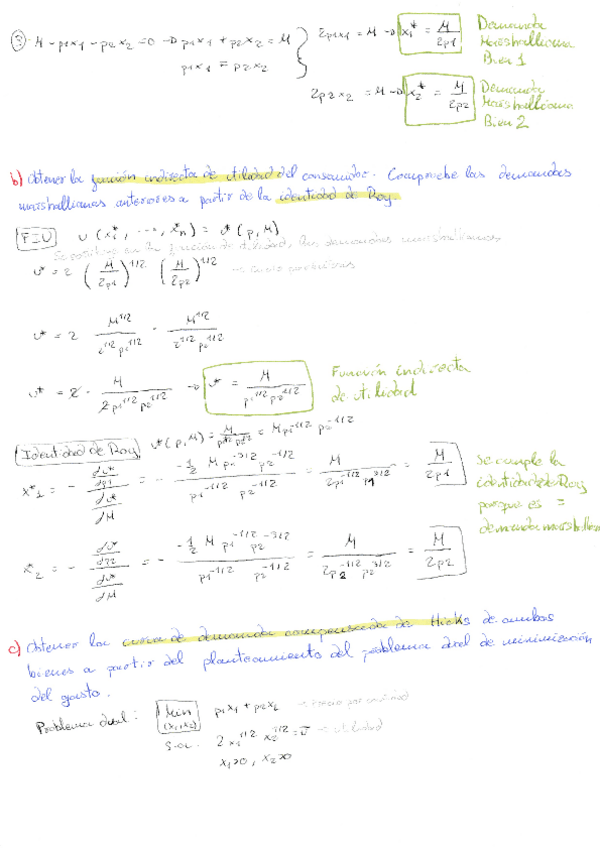 ③ M - p1x1 - p2x2 = 0 → p1x1 + p2x2 = M
p1x1 = p2x2
2p1x1 = M → x1* = M/2p1
Demanda Marshalliana Bien 1
2p2x2 = M → x2* = M/2p2
Demanda Marshalliana Bien 2
b) Obtener la función indirecta de utilidad del consumidor. Compruebe las demandas
marshallianas anteriores a partir de la identidad de Roy.
FIU u(x1*, ..., xn*) = v*(p, M)
en la función de utilidad, las demandas marshallianas
v* = 2 (M/2p1)^1/2 (M/2p2)^1/2
v* = 2 M^1/2 / 2^1/2 p1^1/2 · M^1/2 / 2^1/2 p2^1/2
v* = 2 · M / 2p1^1/2 p2^1/2 → v* = M / p1^1/2 p2^1/2
Función indirecta
de utilidad
Identidad de Roy v*(p, M) = M / p1^1/2 p2^1/2 = M p1^-1/2 p2^-1/2
x*1 = - (dv*/dp1) / (dv*/dM) = - (-1/2 M p1^-3/2 p2^-1/2) / (p1^-1/2 p2^-1/2) = M/2p1
Se cumple la
identidad de Roy
porque es =
demanda marshalliana
x*2 = - (dv*/dp2) / (dv*/dM) = - (-1/2 M p1^-1/2 p2^-3/2) / (p1^-1/2 p2^-1/2) = M / 2p2^-1/2 p2^3/2 = M/2p2
c) Obtener la curva de demanda compensada de Hicks de ambos
bienes a partir del planteamiento del problema dual de minimización
del gasto.
Problema dual: Min (x1,x2) p1x1 + p2x2 → precio por cantidad
s.a. 2 x1^1/2 x2^1/2 = Ū → utilidad
x1>0, x2>0